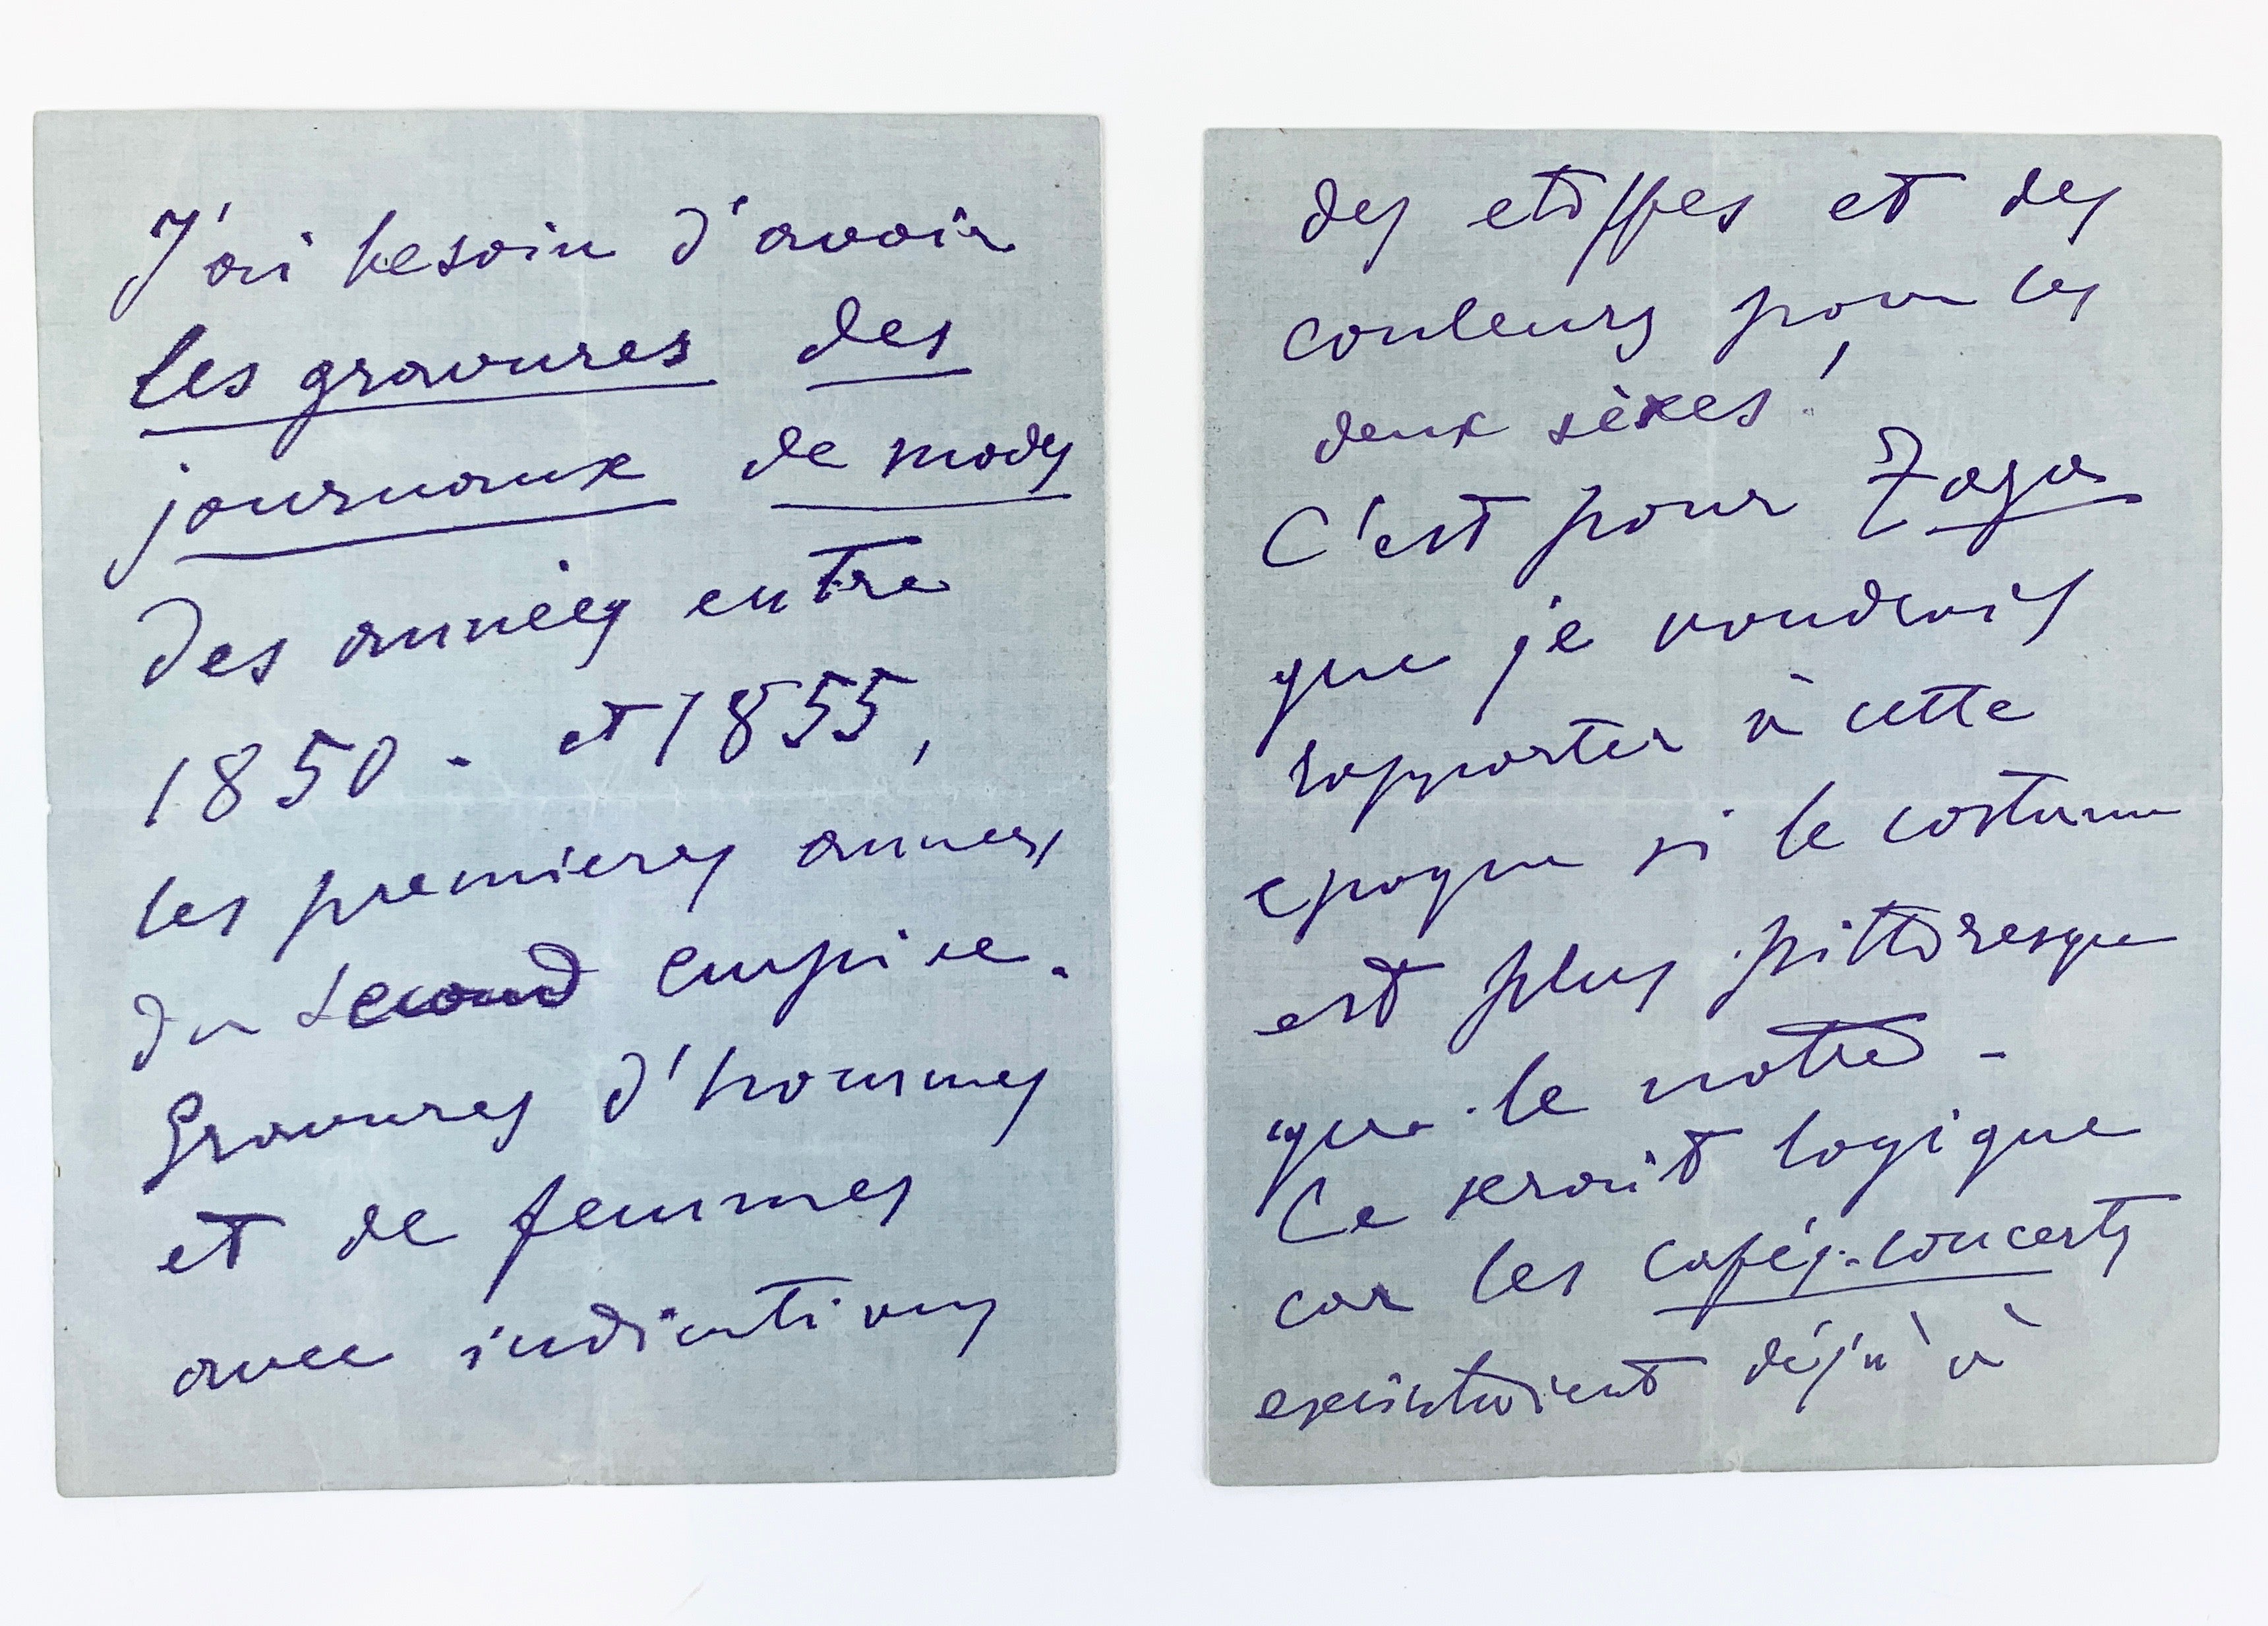 J'ai besoin d'avoir
les gravures des
journaux de modes
des années entre
1850 - et 1855,
les premieres annees
du second empire.
Gravures d'hommes
et de femmes
avec indications
des etoffes et des
couleurs, pour les
deux sèxes!
C'est pour Zaza
que je voudrais
rapporter à cette
epoque si le costume
est plus pittoresque
que le notre -
Ce serait logique
car les cafés-concerts
existaient déjà à